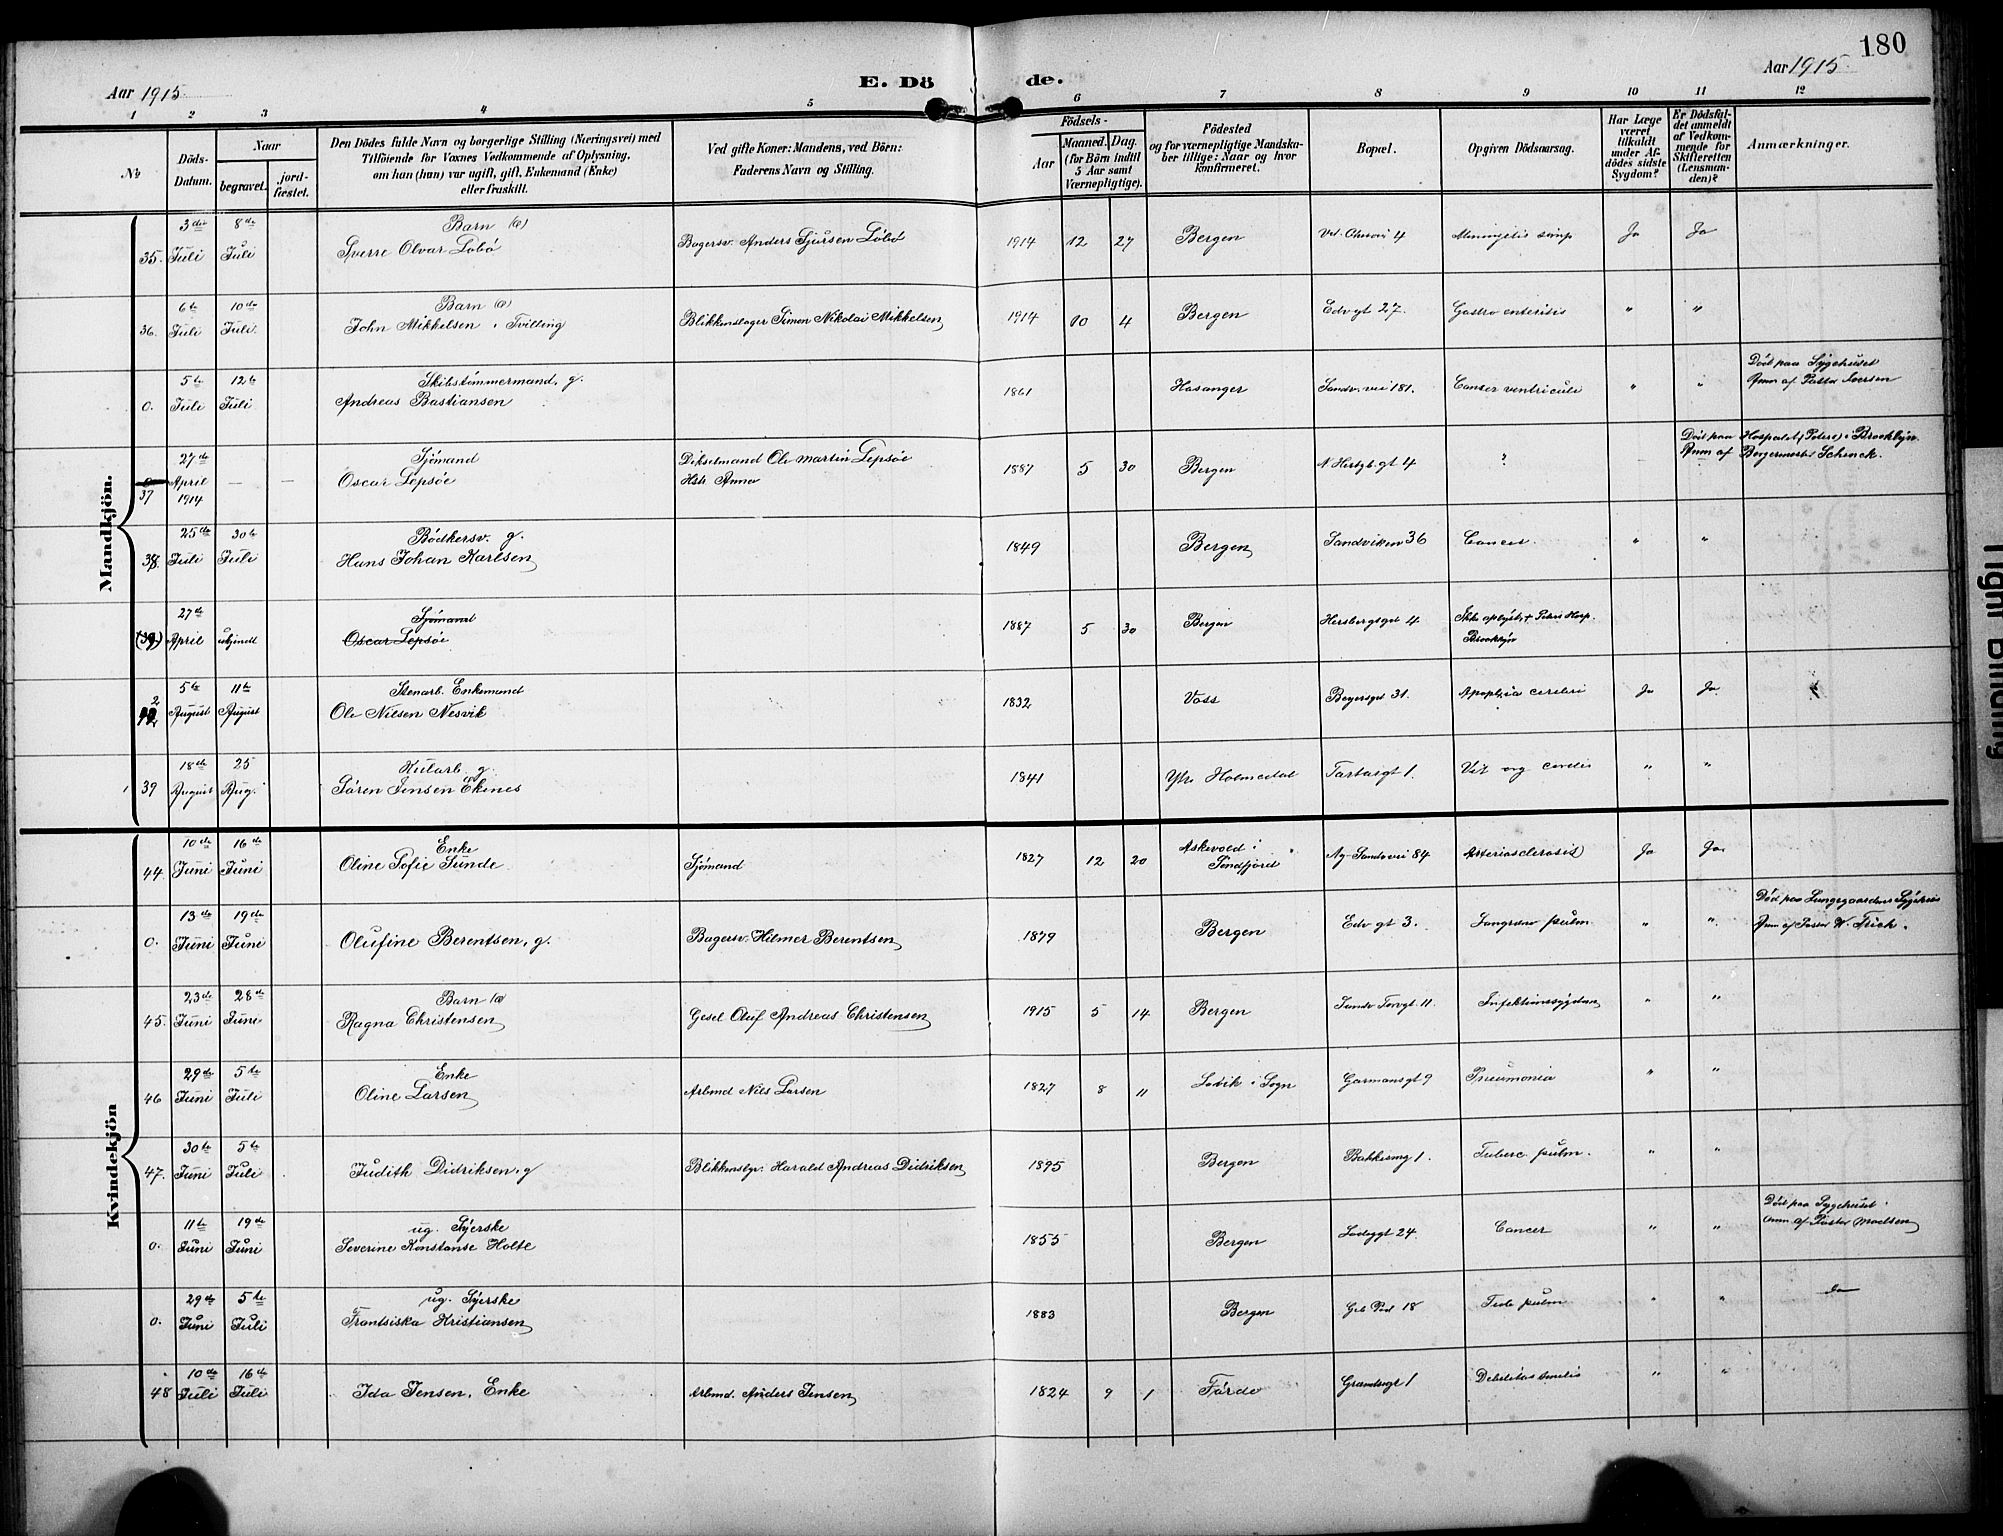 180
Aar 1915.
E. Dö de.
Aar 1915
1 2 3 4 5 6 7 8 9 10 11 12
No
Döds-Datum.
Naar
begravet.
jord-fæstet.
Den Dödes fulde Navn og borgerlige Stilling (Næringsvei) med
Tilföiende for Voxnes Vedkommende af Oplysning,
om han (hun) var ugift, gift, Enkemand (Enke)
eller fraskilt.
Ved gifte Koner: Mandens, ved Börn:
Faderens Navn og Stilling.
Födsels-
Aar
Maaned. Dag.
(for Börn indtil
5 Aar samt
Værnepligtige).
Födested
og for værnepligtige Mandska-
ber tillige: Naar og hvor
konfirmeret.
Bopæl.
Opgiven Dödsaarsag.
Har Læge
været
tilkaldt
under Af-
dödes sidste
Sygdom?
Er Dödsfal-
det anmeldt
af Vedkom-
mende for
Skifteretten
(Lensman-
den)?
Anmærkninger.
Mandkjön.
3die 8de Barn
35. Juli Juli Sverre Olvar Löbö Bagersv. Anders Sjursen Löbö 1914 12 27 Bergen 4 Meningitis Ja Ja
6te 10de Barn
36. Juli Juli. John Mikkelsen, Tvilling Blikkenslager Simon Nikolai Mikkelsen 1914 10 4 Bergen Edv gt 27. Gastro enteritis " "
5te 12te Skibstömmermand, g. Död paa Sygehuset
0. Juli Juli Andreas Bastiansen 1861 Hosanger Sandv. vei 181. Cancer ventriculi " " Anm af Pastor Iversen
27de Sjömand Dikselmand Ole Martin Lepsöe Död paa Hospitalet (Peters) i Brooklyn.
37 April 1914 — — Oscar Lepsöe Hstr Anna 1887 5 30 Bergen N Hersgb. gt 4 ? Anm af Borgermester Schenck.
25de 30te Bödkersv. g.
38. Juli Juli Hans Johan Karlsen 1849 Bergen Sandviken 36 Cancer " "
27de Sjömand
(39) April ubekjendt Oscar Lepsöe 1887 5 30 Bergen Hersbergsgt 4 Ikke oplyst, + Peters Hosp.
Brooklyn
5te 11te Stenarb. Enkemand
August August Ole Nilsen Nesvik 1832 Voss Beyersgt 31. Apoplexia cerebri Ja Ja
18de 25 Kularb. g.
39 August Aug. Sören Jensen Ekenes 1841 Ytre Holmedal Tartargt 1. Vit org cordis " "
Kvindekjön
10de 16de Enke
44. Juni Juni Oline Sofie Sunde Sjömand 1827 12 20 Askevold i Söndfjord Ny-Sandvvei 84 Arteriosclerosis Ja Ja
13de 19de Död paa Lungegaardens Sygehus
0. Juni Juni Olufine Berentsen, g. Bagersv. Hilmer Berentsen 1879 Bergen Edv gt 3. Gangræn pulm " " Anm af Pastor W. Frich.
23de 28de Barn
45. Juni Juni Ragna Christensen Gesel Oluf Andreas Christensen 1915 5 14 Bergen Sandv Torvgt. 11. Infektionssygdom " "
29de 5te Enke
46 Juni Juli Oline Larsen Arbmd Nils Larsen 1827 8 11 Ladvik i Sogn Garmansgt 9 Pneumonia " "
30te 5te
47. Juni Juli Judith Didriksen, g Blikkenslgr. Harald Andreas Didriksen 1895 Bergen Bakkesmg 1. Tuberc. pulm. " "
11te 19de ug. Syerske Död paa Sygehuset.
0. Juni Juni Severine Konstanse Holte 1855 Bergen Ladeggt 24. Cancer " " Anm af Pastor Moelsen
29de 5te ug. Syerske
0. Juni Juli Frantsiska Kristiansen 1883 Bergen 18 Tub. pulm " " do
10de 16de
48 Juli Juli Ida Jensen, Enke Arbmd. Anders Jensen 1824 9 1 Förde Grandsgt 1 Debilitas senilis " "
Tight Binding